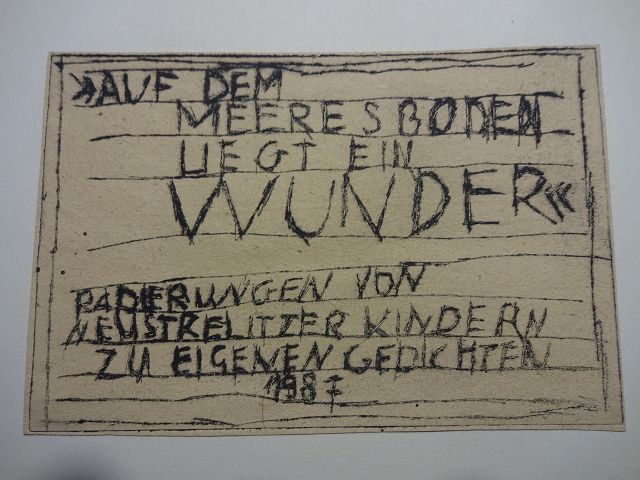 »AUF DEM
MEERESBODEN
LIEGT EIN
WUNDER«
RADIERUNGEN VON
NEUSTRELITZER KINDERN
ZU EIGENEN GEDICHTEN
1987